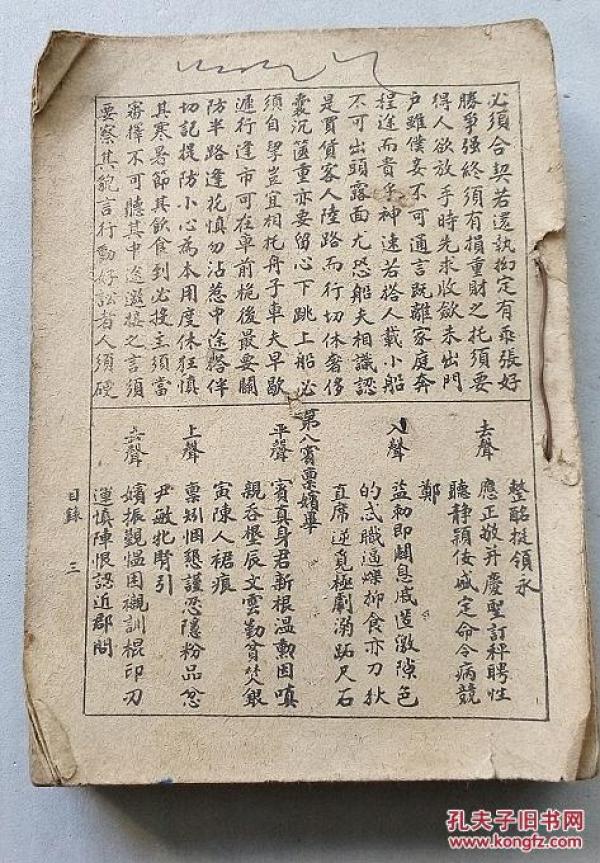 必須合契若還執拗定有乖張好
勝爭强終須有損重財之托須要
得人欲放手時先求收斂未出門
戶雖僕妾不可通言既離家庭奔
程途而貴乎神速若搭人載小船
不可出頭露面尤恐船夫相識認
是買貨客人陸路而行切休奢侈
囊沉篋重亦要留心下跳上船必
須自學豈宜相托舟子車夫早歇
遲行逢市可在車前桅後最要關
防半路逢花慎勿沾惹中途搭伴
切記提防小心為本用度休狂慎
其寒暑節其飲食到彼投主須當
審擇不可聽其中途邀接之言須
要察其貌言行動好訟者人須硬
整酩挺領永
去聲 應正敬并慶聖訂秤聘性
聽静穎佞盛定命令病競
鄭
入聲 益勑即闢息戚造激隙色
的忒職逼蝶抑食亦刀狄
直席逆覓極劇溺跖尺石
第八賓禀嬪畢
平聲 賓真身君新根温勳因嗔
親吞墾辰文雲勤貧焚銀
寅陳人裙痕
上聲 禀矧悃懇謹忍隱粉品忽
尹敏牝賢引
去聲 嬪振觀愠困襯訓棍印刃
運慎陣恨認近郡問
目錄 三
孔夫子旧书网